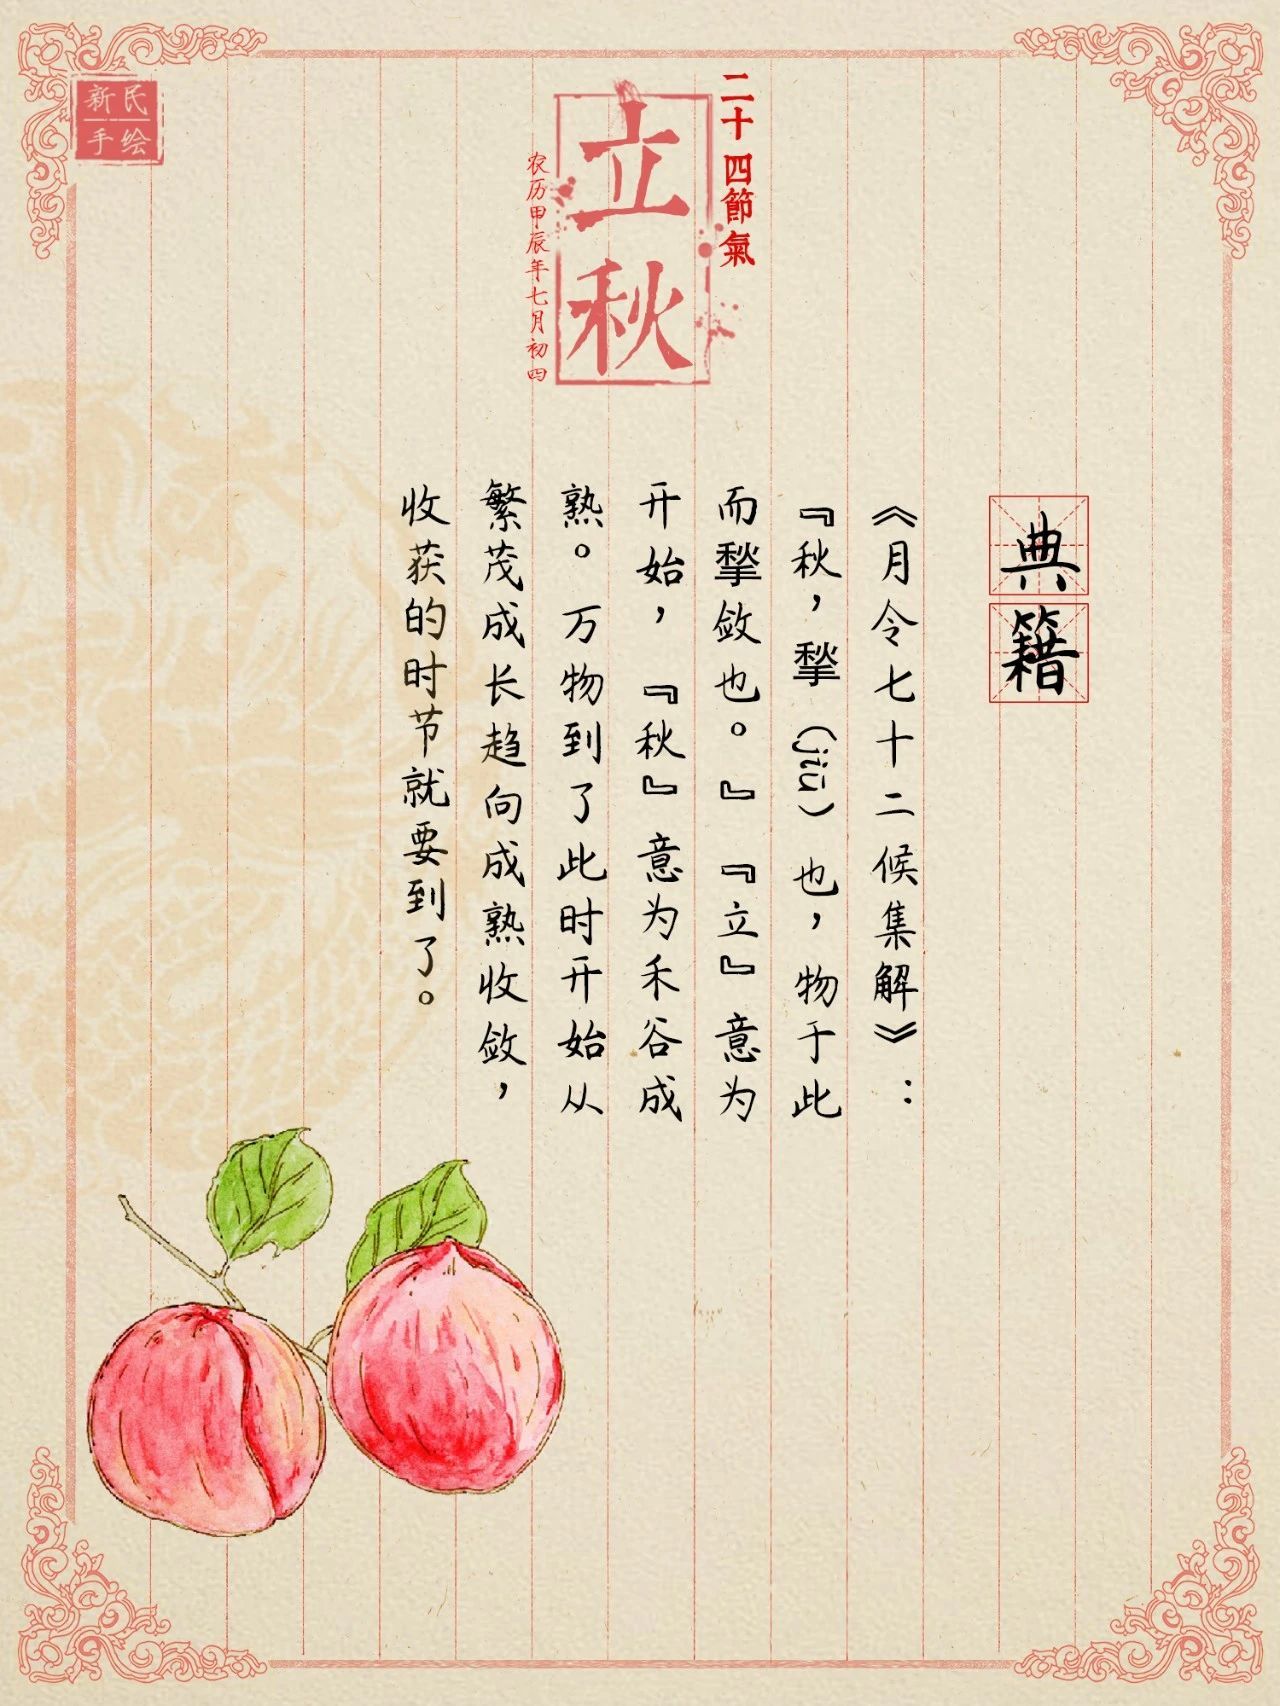 新民
手绘
二十四節氣
立秋
农历甲辰年七月初四
典籍
《月令七十二候集解》：
『秋，揫（jiū）也，物于此
而揫敛也。』『立』意为
开始，『秋』意为禾谷成
熟。万物到了此时开始从
繁茂成长趋向成熟收敛，
收获的时节就要到了。